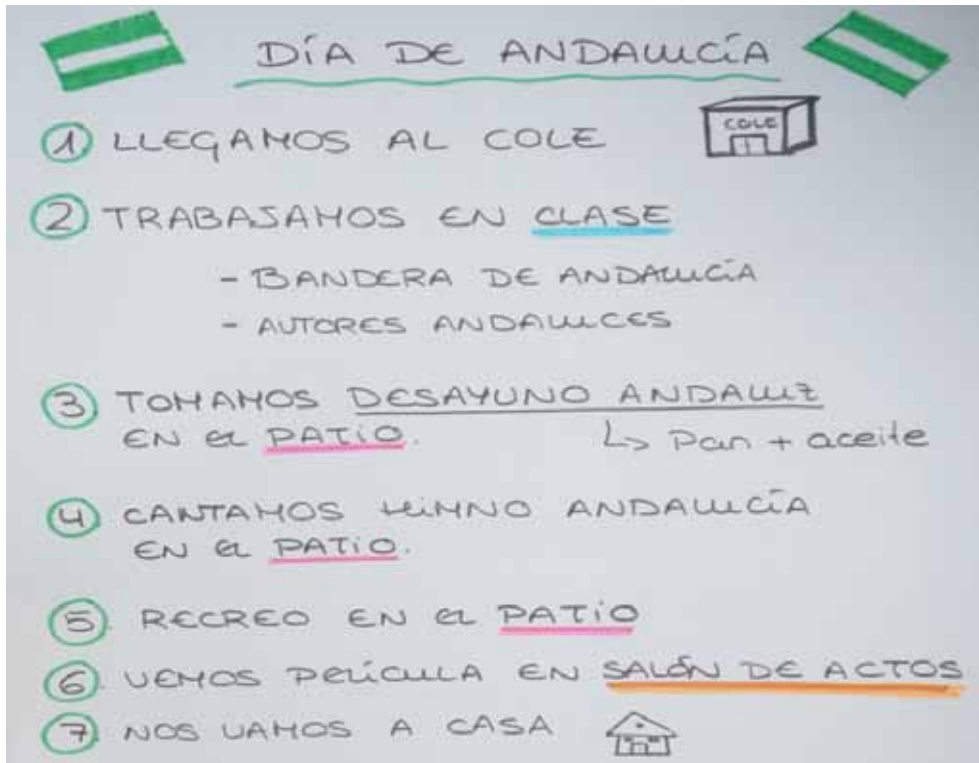 DÍA DE ANDALUCÍA
1 LLEGAMOS AL COLE
COLE
2 TRABAJAMOS EN CLASE
- BANDERA DE ANDALUCÍA
- AUTORES ANDALUCES
3 TOMAMOS DESAYUNO ANDALUZ
EN EL PATIO.
↳ Pan + aceite
4 CANTAMOS HIMNO ANDALUCÍA
EN EL PATIO.
5. RECREO EN EL PATIO
6. VEMOS PELÍCULA EN SALÓN DE ACTOS
7 NOS VAMOS A CASA